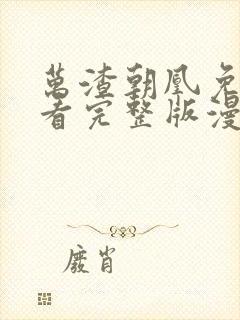 萬渣朝凰免
看完整版漫
廢肖